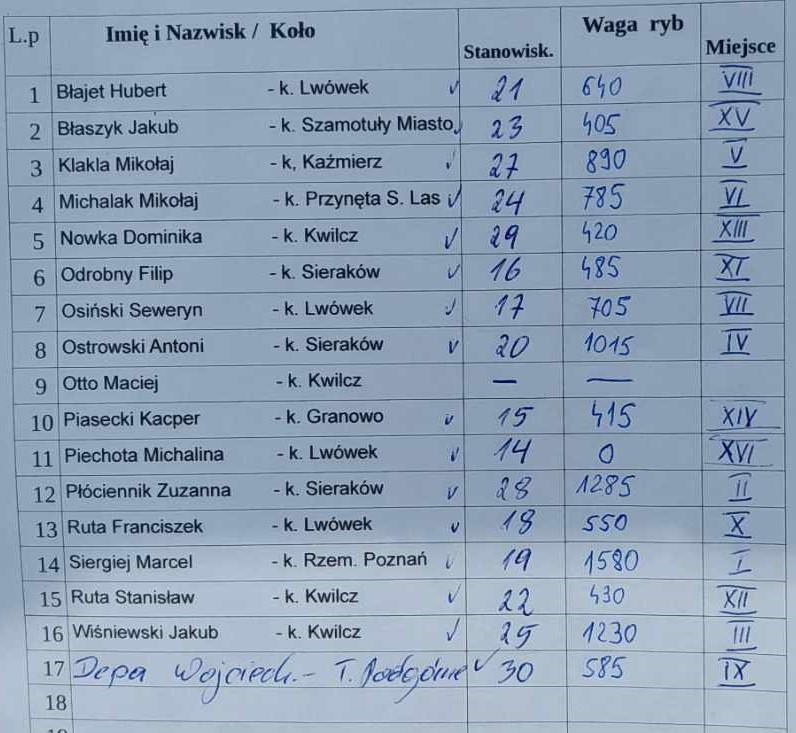 L.p Imię i Nazwisk / Koło Stanowisk. Waga ryb Miejsce
1 Błajet Hubert - k. Lwówek 21 640 VIII
2 Błaszyk Jakub - k. Szamotuły Miasto 23 405 XV
3 Klakla Mikołaj - k, Kaźmierz 27 890 V
4 Michalak Mikołaj - k. Przynęta S. Las 24 785 VI
5 Nowka Dominika - k. Kwilcz 29 420 XIII
6 Odrobny Filip - k. Sieraków 16 485 XI
7 Osiński Seweryn - k. Lwówek 17 705 VII
8 Ostrowski Antoni - k. Sieraków 20 1015 IV
9 Otto Maciej - k. Kwilcz — —
10 Piasecki Kacper - k. Granowo 15 415 XIV
11 Piechota Michalina - k. Lwówek 14 0 XVI
12 Płóciennik Zuzanna - k. Sieraków 28 1285 II
13 Ruta Franciszek - k. Lwówek 18 550 X
14 Siergiej Marcel - k. Rzem. Poznań 19 1580 I
15 Ruta Stanisław - k. Kwilcz 22 430 XII
16 Wiśniewski Jakub - k. Kwilcz 25 1230 III
17 Depa Wojciech - T. Podgórne 30 585 IX
18